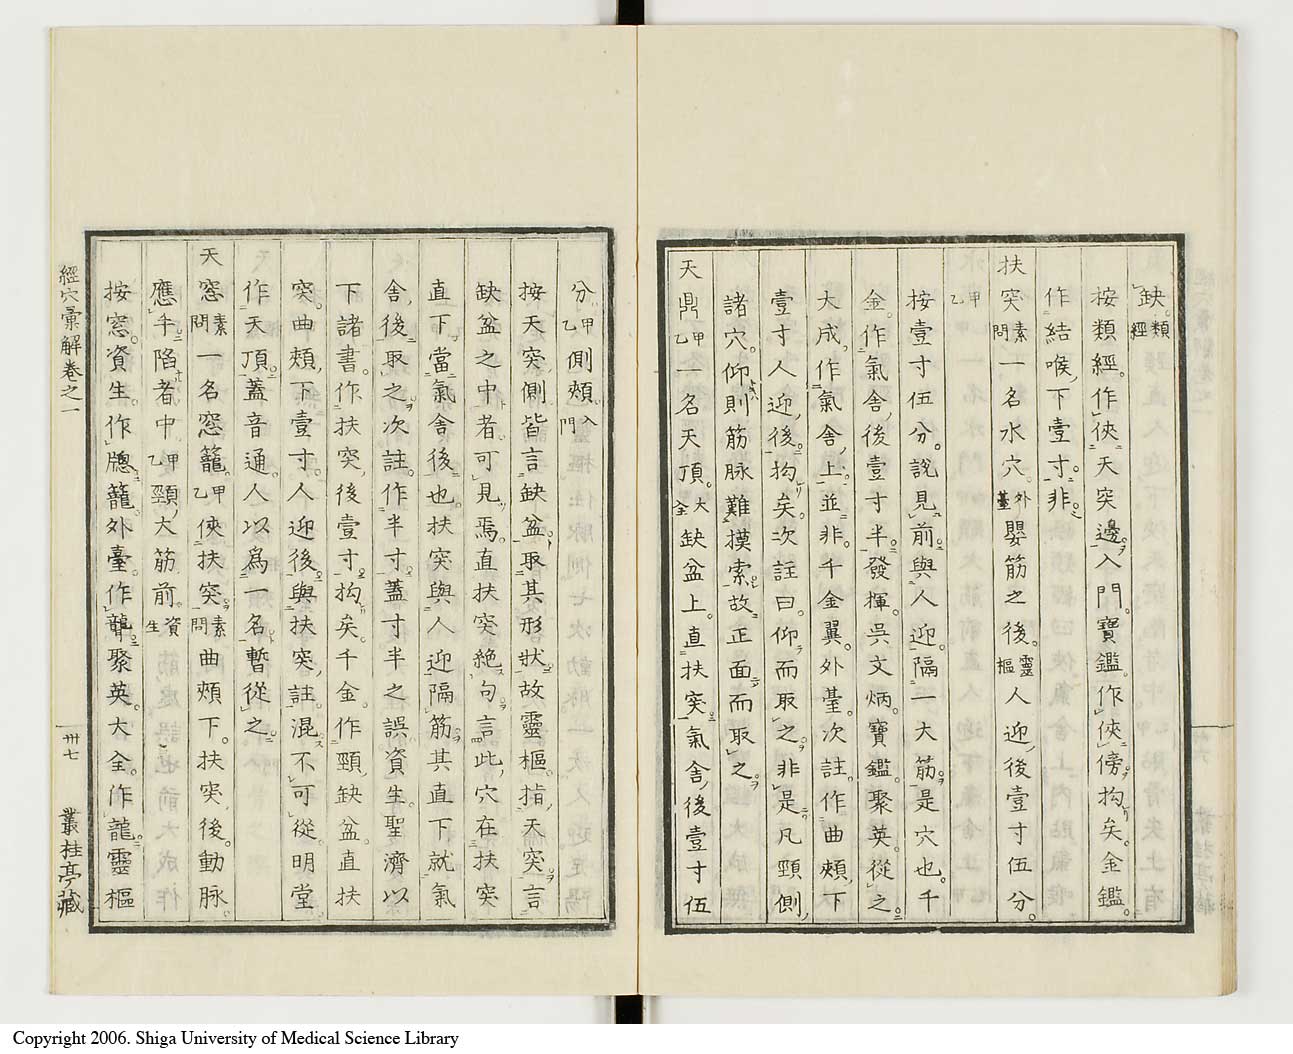 缺類經
按類經作俠天突邊入門寶鑑作俠傍拘矣金鑑
作結喉下壹寸非
扶突素問一名水穴外臺嬰筋之後靈樞人迎後壹寸伍分
按壹寸伍分說見前與人迎隔一大筋是穴也千
金作氣舍後壹寸半發揮吳文炳寶鑑聚英從之
大成作氣舍上並非千金翼外臺次註作曲頰下
壹寸人迎後拘矣次註曰仰而取之非是凡頸側
諸穴仰則筋脉難摸索故正面而取之
天鼎甲乙一名天頂大全缺盆上直扶突氣舍後壹寸伍
分甲乙側頰入門
按天突側皆言缺盆取其形狀故靈樞指天突言
缺盆之中者可見焉直扶突絶句言此穴在扶突
直下當氣舍後也扶突與人迎隔筋其直下就氣
舍後取之次註作半寸蓋寸半之誤資生聖濟以
下諸書作扶突後壹寸拘矣千金作頸缺盆直扶
突曲頰下壹寸人迎後與扶突註混不可從明堂
作天頂蓋音通人以爲一名暫從之
天窓素問一名窓籠甲乙俠扶突素問曲頰下扶突後動脉
應手陷者中甲乙頸大筋前資生
按窓資生作牕籠外臺作龍聚英大全作龍靈樞
經穴彙解卷之一
卅七
叢桂亭藏
Copyright 2006. Shiga University of Medical Science Library